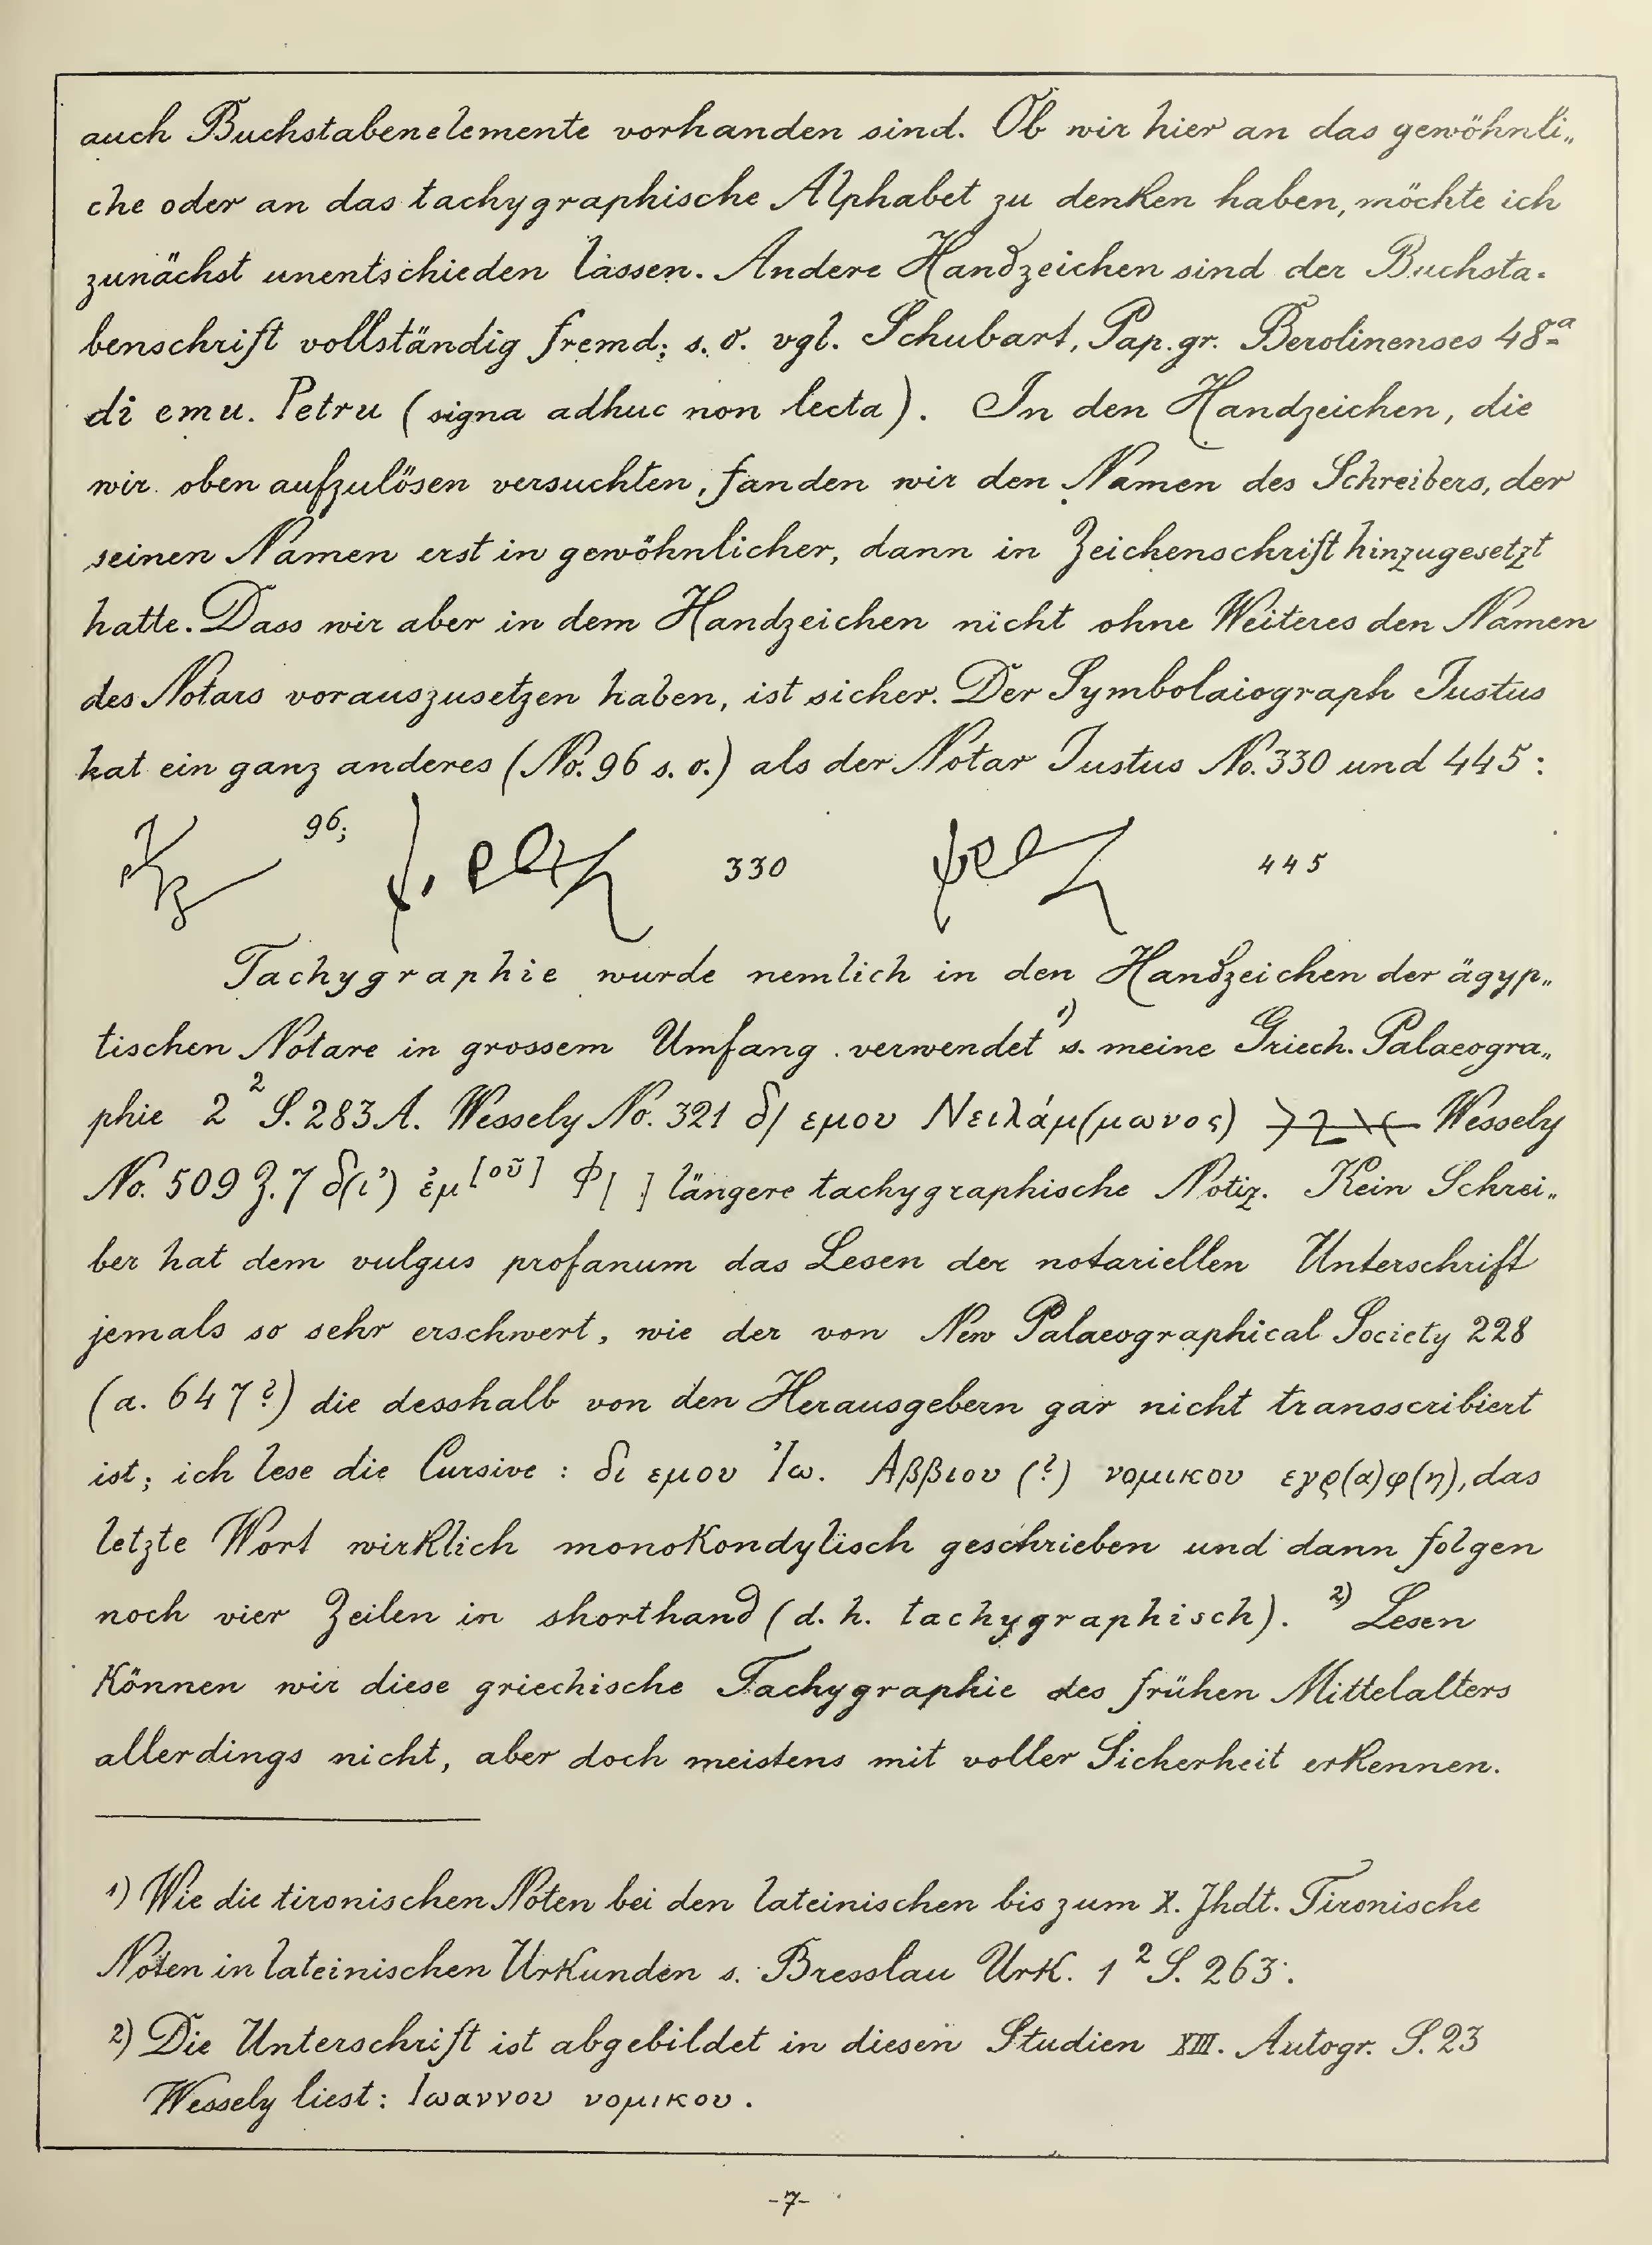 auch Buchstabenelemente vorhanden sind. Ob wir hier an das gewöhnli„
che oder an das tachygraphische Alphabet zu denken haben, möchte ich
zunächst unentschieden lassen. Andere Handzeichen sind der Buchsta-
benschrift vollständig fremd; s. o. vgl. Schubart, Pap. gr. Berolinenses 48ª
di emu. Petru (signa adhuc non lecta). In den Handzeichen, die
wir oben aufzulösen versuchten, fanden wir den Namen des Schreibers, der
seinen Namen erst in gewöhnlicher, dann in Zeichenschrift hinzugesetzt
hatte. Dass wir aber in dem Handzeichen nicht ohne Weiteres den Namen
des Notars vorauszusetzen haben, ist sicher. Der Symbolaiograph Justus
hat ein ganz anderes (No. 96 s. o.) als der Notar Justus No. 330 und 445:
96; 330 445
Tachygraphie wurde nemlich in den Handzeichen der ägyp„
tischen Notare in grossem Umfang verwendet ¹) s. meine Griech. Palaeogra„
phie 2² S. 283 A. Wessely No. 321 δ/ εμου Νειλάμ(μωνος) Wessely
No. 509 Z. 7 δ(ι’) ἐμ[οῦ] Φ[ ] längere tachygraphische Notiz. Kein Schrei„
ber hat dem vulgus profanum das Lesen der notariellen Unterschrift
jemals so sehr erschwert, wie der von New Palaeographical Society 228
(a. 647?) die desshalb von den Herausgebern gar nicht transscribiert
ist; ich lese die Cursive: δι εμου Ἰω. Αββιου (?) νομικου εγρ(α)φ(η), das
letzte Wort wirklich monokondylisch geschrieben und dann folgen
noch vier Zeilen in shorthand (d. h. tachygraphisch). ²) Lesen
können wir diese griechische Tachygraphie des frühen Mittelalters
allerdings nicht, aber doch meistens mit voller Sicherheit erkennen.
¹) Wie die tironischen Noten bei den lateinischen bis zum X. Jhdt. Tironische
Noten in lateinischen Urkunden s. Bresslau Urk. 1² S. 263.
²) Die Unterschrift ist abgebildet in diesen Studien XIII. Autogr. S. 23
Wessely liest: Ιωαννου νομικου.
-7-